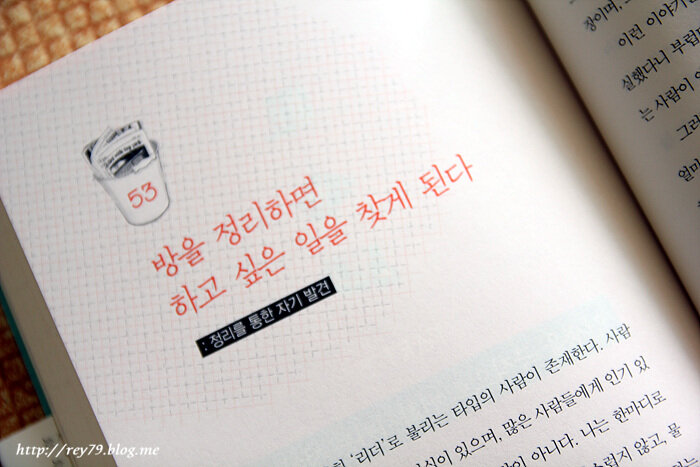 53
방을 정리하면
하고 싶은 일을 찾게 된다
: 정리를 통한 자기 발견
'리더'로 불리는 타입의 사람이 존재한다. 사람
있으며, 많은 사람들에게 인기 있
아니다. 나는 한마디로
않고, 물
장이며,
이런 이야기
실했다니 부럽
는 사람이
그러
얼마
http://rey79.blog.me